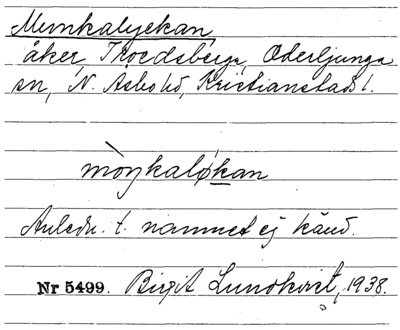 Munkalyckan
åker, Troedsberga, Oderljunga
sn, N. Åsbo hd, Kristianstads l.
mòŋkaløkan
Anledn. t. namnet ej känd.
Nr 5499. Birgit Lundkvist, 1938.